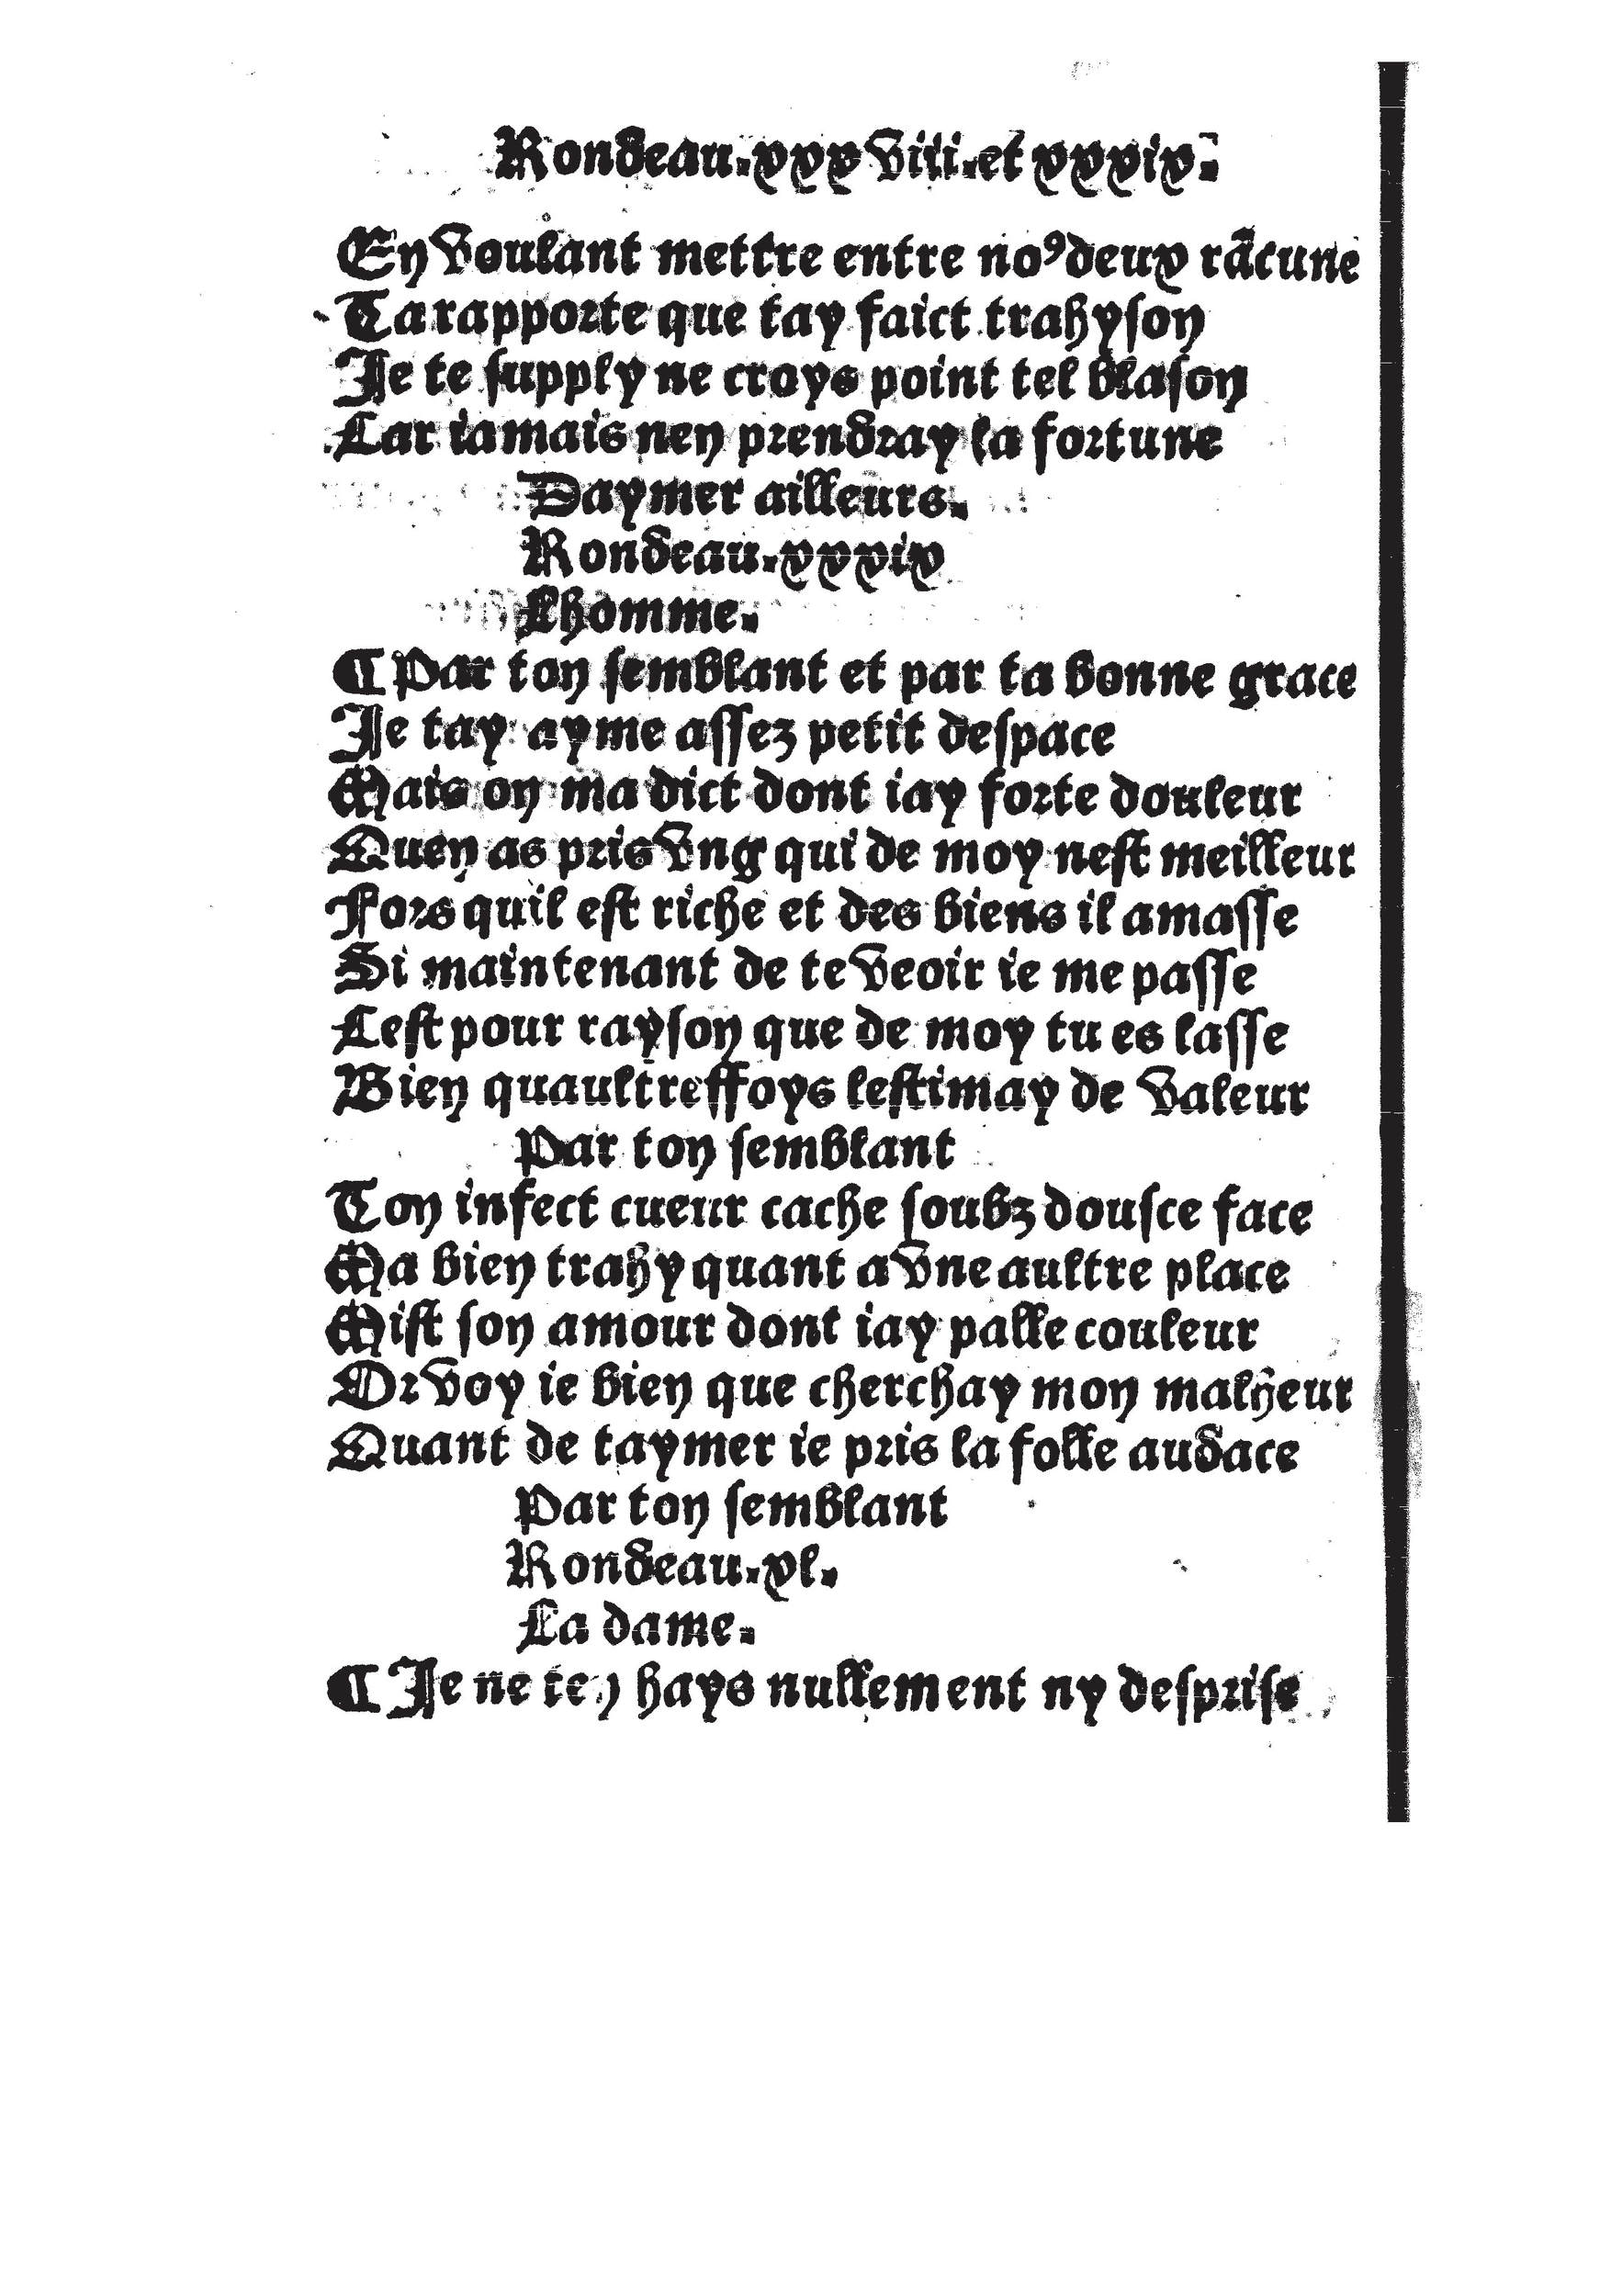 Rondeau.xxxviii.et xxxix.
En voulant mettre entre noꝰ deux rācune
Ta rapporte que tay faict trahyson
Je te supply ne croys point tel blason
Car iamais nen prendray la fortune
Daymer ailleurs.
Rondeau.xxxix
Lhomme.
¶ Par ton semblant et par ta bonne grace
Je tay ayme assez petit despace
Mais on ma dict dont iay forte douleur
Quen as pris vng qui de moy nest meilleur
Fors quil est riche et des biens il amasse
Si maintenant de te veoir ie me passe
Cest pour rayson que de moy tu es lasse
Bien quaultreffoys lestimay de valeur
Par ton semblant
Ton infect cueur cache soubz dousce face
Ma bien trahy quant a vne aultre place
Mist son amour dont iay palle couleur
Or voy ie bien que cherchay mon malheur
Quant de taymer ie pris la folle audace
Par ton semblant
Rondeau.xl.
La dame.
¶ Je ne ten hays nullement ny desprise